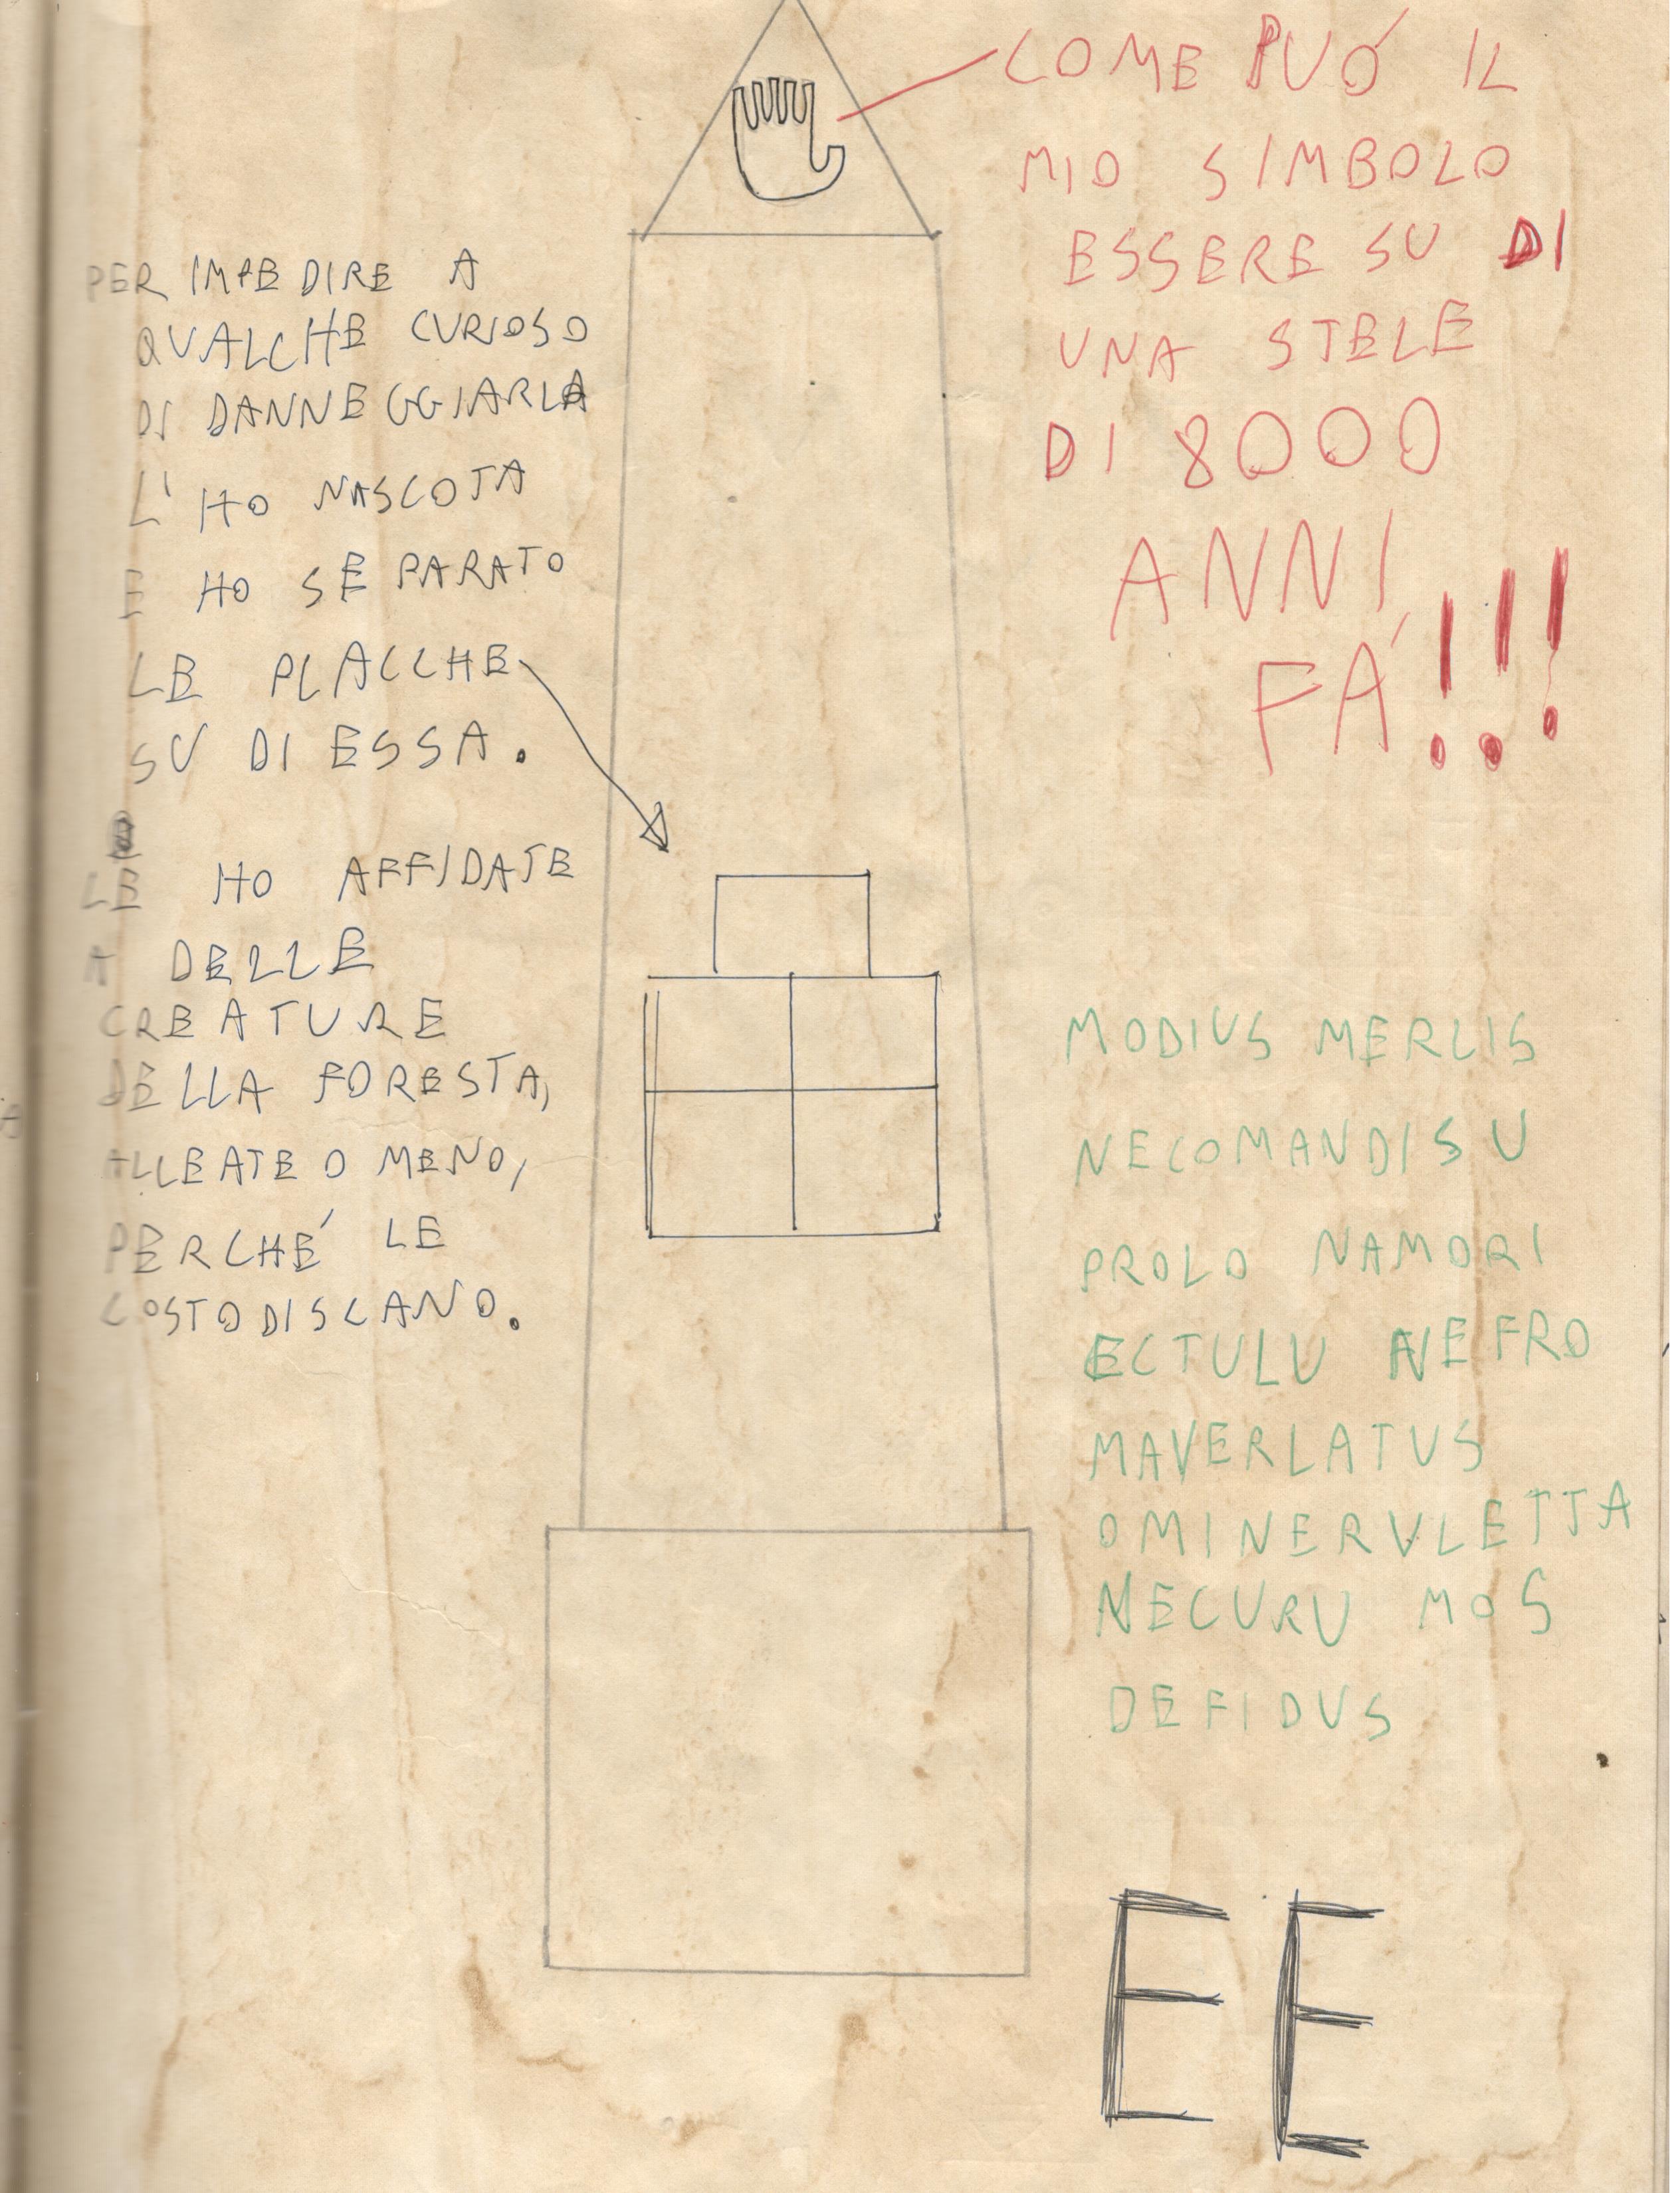 COME PUÓ IL
MIO SIMBOLO
ESSERE SU DI
UNA STELE
DI 8000
ANNI
FÁ!!!
PER IMPEDIRE A
QUALCHE CURIOSO
DI DANNEGGIARLA
L'HO NASCOTA
E HO SEPARATO
LE PLACCHE
SU DI ESSA.
LE HO AFFIDATE
A DELLE
CREATURE
DELLA FORESTA,
ALLEATE O MENO,
PERCHÉ LE
COSTODISCANO.
MODIUS MERLIS
NECOMANDISU
PROLO NAMORI
ECTULU NEFRO
MAVERLATUS
OMINERVLETTA
NECURU MOS
DEFIDUS
EE